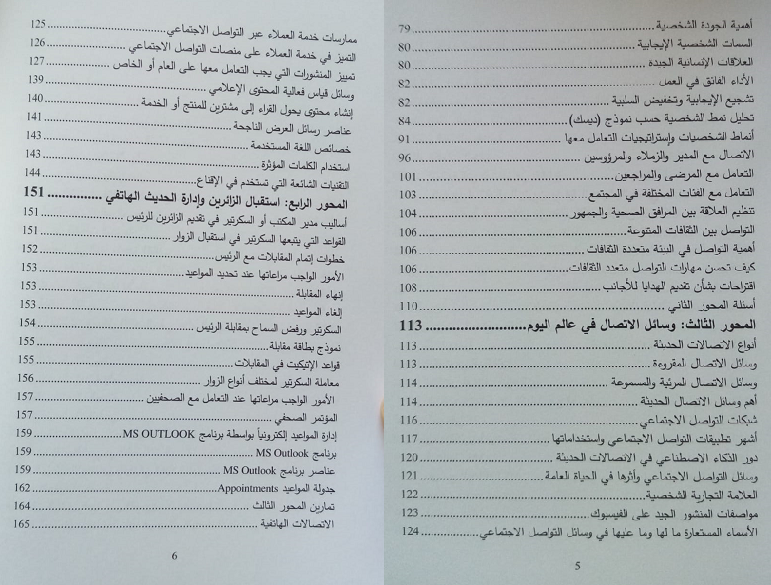 أهمية الجودة الشخصية ........ 79
السمات الشخصية الإيجابية ........ 80
العلاقات الإنسانية الجيدة ........ 80
الأداء الفائق في العمل ........ 82
تشجيع الإيجابية وتخفيض السلبية ........ 82
تحليل نمط لشخصية حسب نموذج (ديسك) ........ 84
أنماط الشخصيات وإستراتيجيات التعامل معها ........ 91
الاتصال مع المدير والزملاء ولمرؤوسين ........ 96
التعامل مع المرضى والمراجعين ........ 101
التعامل مع الفئات المختلفة في المجتمع ........ 103
تنظيم العلاقة بين المرافق الصحية والجمهور ........ 104
التواصل بين الثقافات المتنوعة ........ 106
أهمية التواصل في البيئة متعددة الثقافات ........ 106
كيف تحسن مهارات التواصل متعدد الثقافات ........ 106
اقتراحات بشأن تقديم الهدايا للأجانب ........ 108
أسئلة المحور الثاني ........ 110
المحور الثالث: وسائل الاتصال في عالم اليوم ........ 113
أنواع الاتصالات الحديثة ........ 113
وسائل الاتصال المقروءة ........ 113
وسائل الاتصال المرئية والمسموعة ........ 114
أهم وسائل الاتصال الحديثة ........ 114
شبكات التواصل الاجتماعي ........ 116
أشهر تطبيقات التواصل الاجتماعي واستخداماتها ........ 117
دور الذكاء الاصطناعي في الاتصالات الحديثة ........ 120
وسائل التواصل الاجتماعي وأثرها في الحياة العامة ........ 121
العلامة التجارية الشخصية ........ 122
مواصفات المنشور الجيد على الفيسبوك ........ 123
الأسماء المستعارة ما لها وما عليها في وسائل التواصل الاجتماعي ........ 124
5
ممارسات خدمة العملاء عبر التواصل الاجتماعي ........ 125
التميز في خدمة العملاء على منصات التواصل الاجتماعي ........ 126
تمييز المنشورات التي يجب التعامل معها على العام أو الخاص ........ 127
وسائل قياس فعالية المحتوى الإعلامي ........ 139
إنشاء محتوى يحول القراء إلى مشترين للمنتج أو الخدمة ........ 140
عناصر رسائل العرض الناجحة ........ 141
خصائص اللغة المستخدمة ........ 143
استخدام الكلمات المؤثرة ........ 143
التقنيات الشائعة التي تستخدم في الإقناع ........ 144
المحور الرابع: استقبال الزائرين وإدارة الحديث الهاتفي ........ 151
أساليب مدير المكتب أو السكرتير في تقديم الزائرين للرئيس ........ 151
القواعد التي يتبعها السكرتير في استقبال الزوار ........ 151
خطوات إتمام المقابلات مع الرئيس ........ 152
الأمور الواجب مراعاتها عند تحديد المواعيد ........ 153
إنهاء المقابلة ........ 153
إلغاء المواعيد ........ 153
السكرتير ورفض السماح بمقابلة الرئيس ........ 154
نموذج بطاقة مقابلة ........ 155
قواعد الإتيكيت في المقابلات ........ 155
معاملة السكرتير لمختلف أنواع الزوار ........ 156
الأمور الواجب مراعاتها عند التعامل مع الصحفيين ........ 157
المؤتمر الصحفي ........ 157
إدارة المواعيد إلكترونياً بواسطة برنامج MS OUTLOOK ........ 159
برنامج MS Outlook ........ 159
عناصر برنامج MS Outlook ........ 159
جدولة المواعيد Appointments ........ 162
تمارين المحور الثالث ........ 164
الاتصالات الهاتفية ........ 165
6